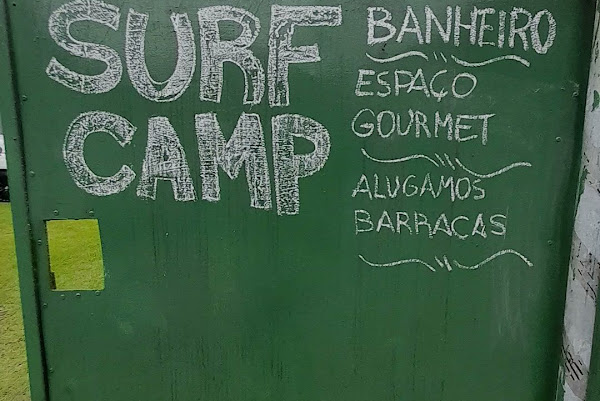 SURF
CAMP
BANHEIRO
ESPAÇO
GOURMET
ALUGAMOS
BARRACAS